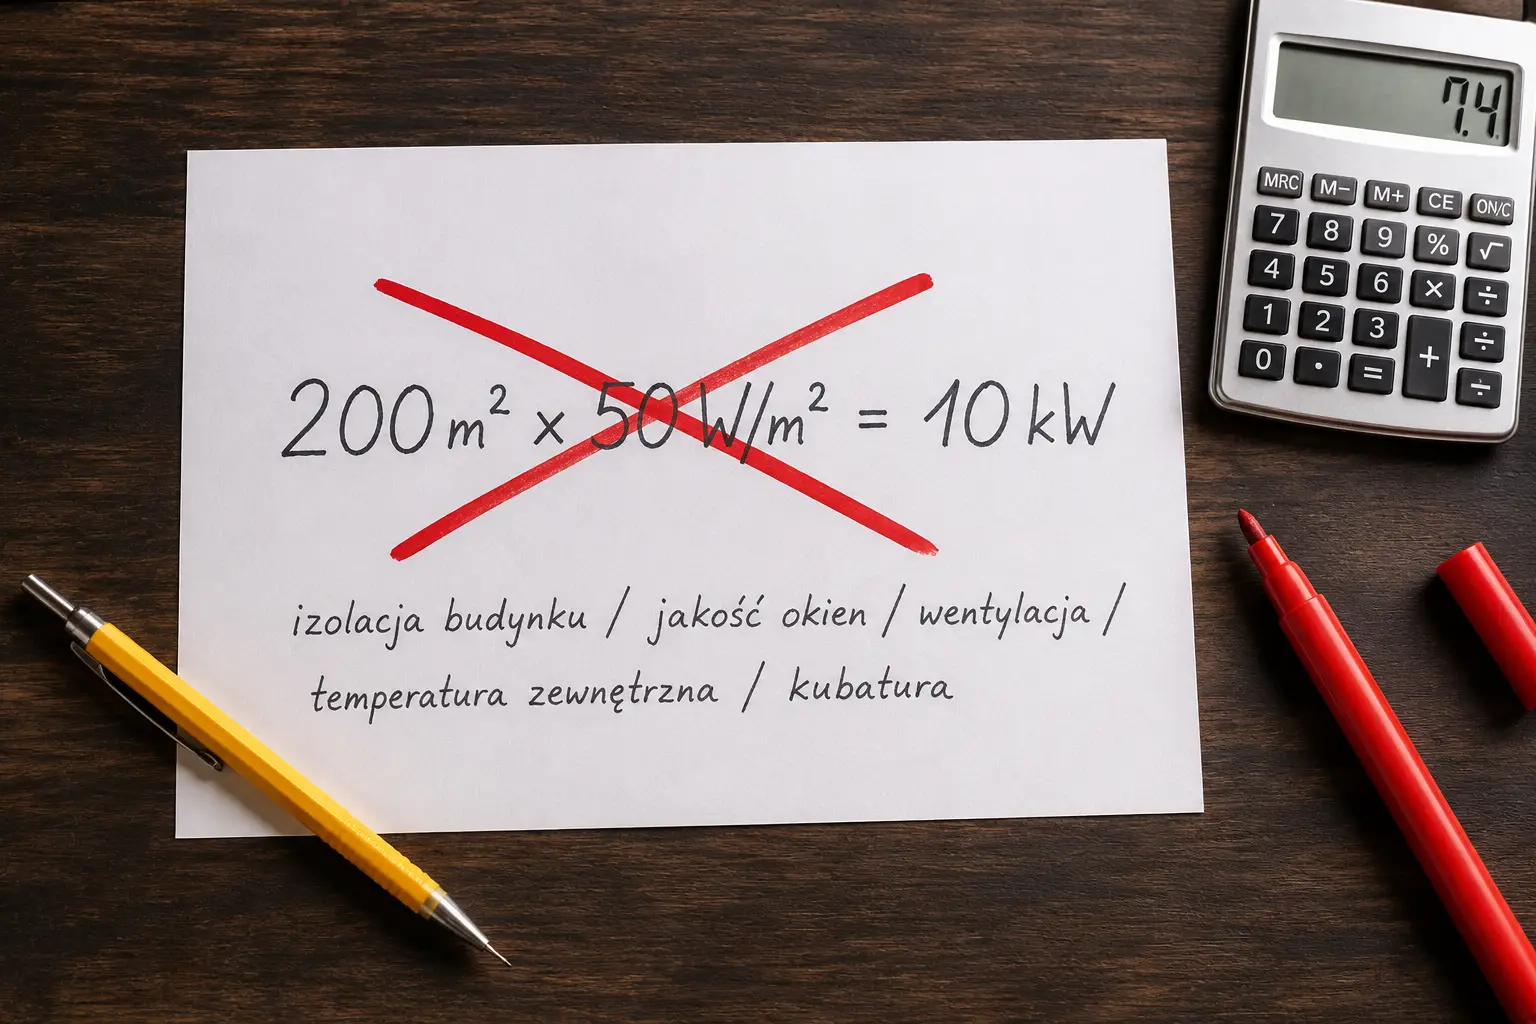 200 m² x 50 W/m² = 10 kW
izolacja budynku / jakość okien / wentylacja /
temperatura zewnętrzna / kubatura
7.4
MRC M− M+ CE ON/C
7 8 9 % √
4 5 6 × ÷
1 2 3 + ÷
0 • = ÷